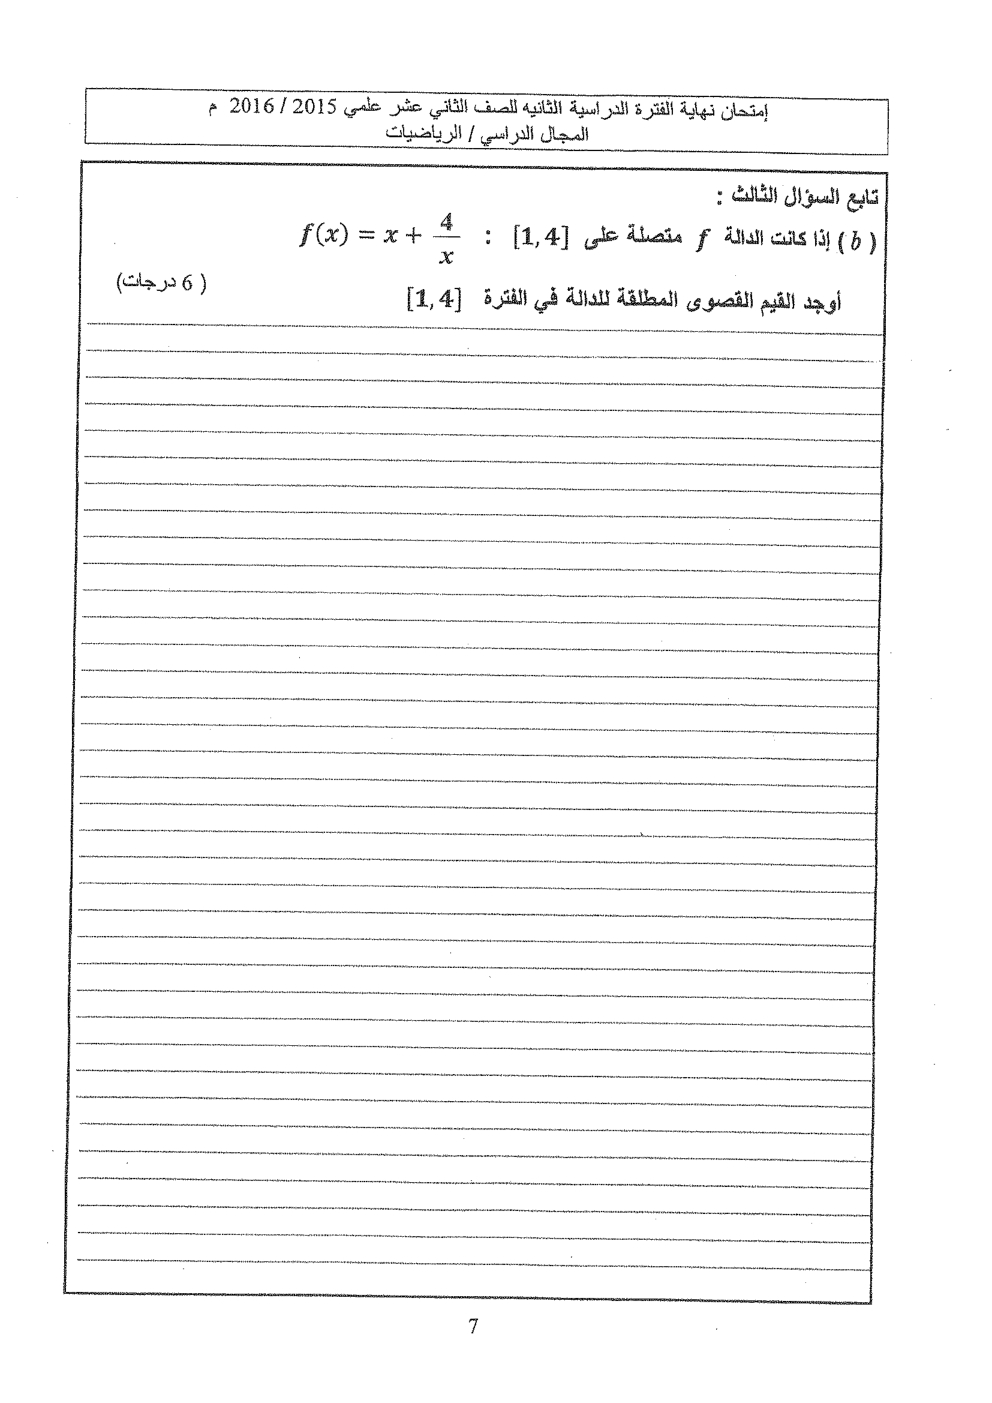 إمتحان نهاية الفترة الدراسية الثانيه للصف الثاني عشر علمي 2015 / 2016 م
المجال الدراسي / الرياضيات
تابع السؤال الثالث :
( b ) إذا كانت الدالة f متصلة على [1, 4] : f(x) = x + 4/x
أوجد القيم القصوى المطلقة للدالة في الفترة [1, 4] ( 6 درجات)
7